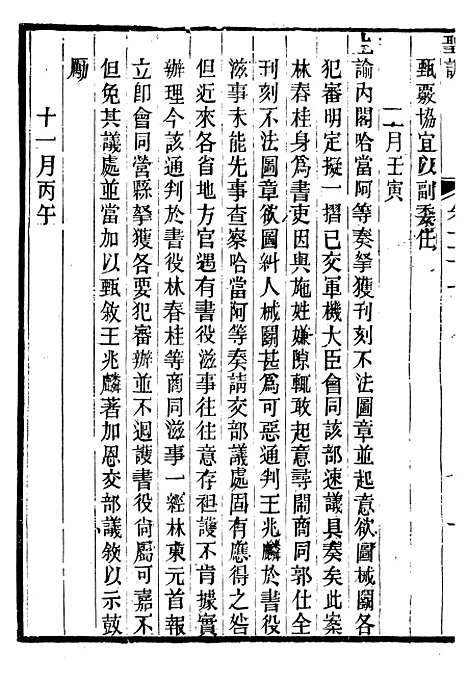 聖訓
甄覈協宜以副委任
十月壬寅
上諭內閣哈當阿等奏拏獲刊刻不法圖章並起意欲圖械鬬各
犯審明定擬一摺已交軍機大臣會同該部速議具奏矣此案
林春桂身為書吏因與施姓嫌隙輒敢起意尋鬧商同郭仕全
刊刻不法圖章欲圖糾人械鬬甚為可惡通判王兆麟於書役
滋事未能先事查察哈當阿等奏請交部議處固有應得之咎
但近來各省地方官遇有書役滋事往往意存袒護不肯據實
辦理今該通判於書役林春桂等商同滋事一經林東元首報
立卽會同營縣拏獲各要犯審辦並不迴護書役尙屬可嘉不
但免其議處並當加以甄敘王兆麟著加恩交部議敘以示鼓
勵
十一月丙午